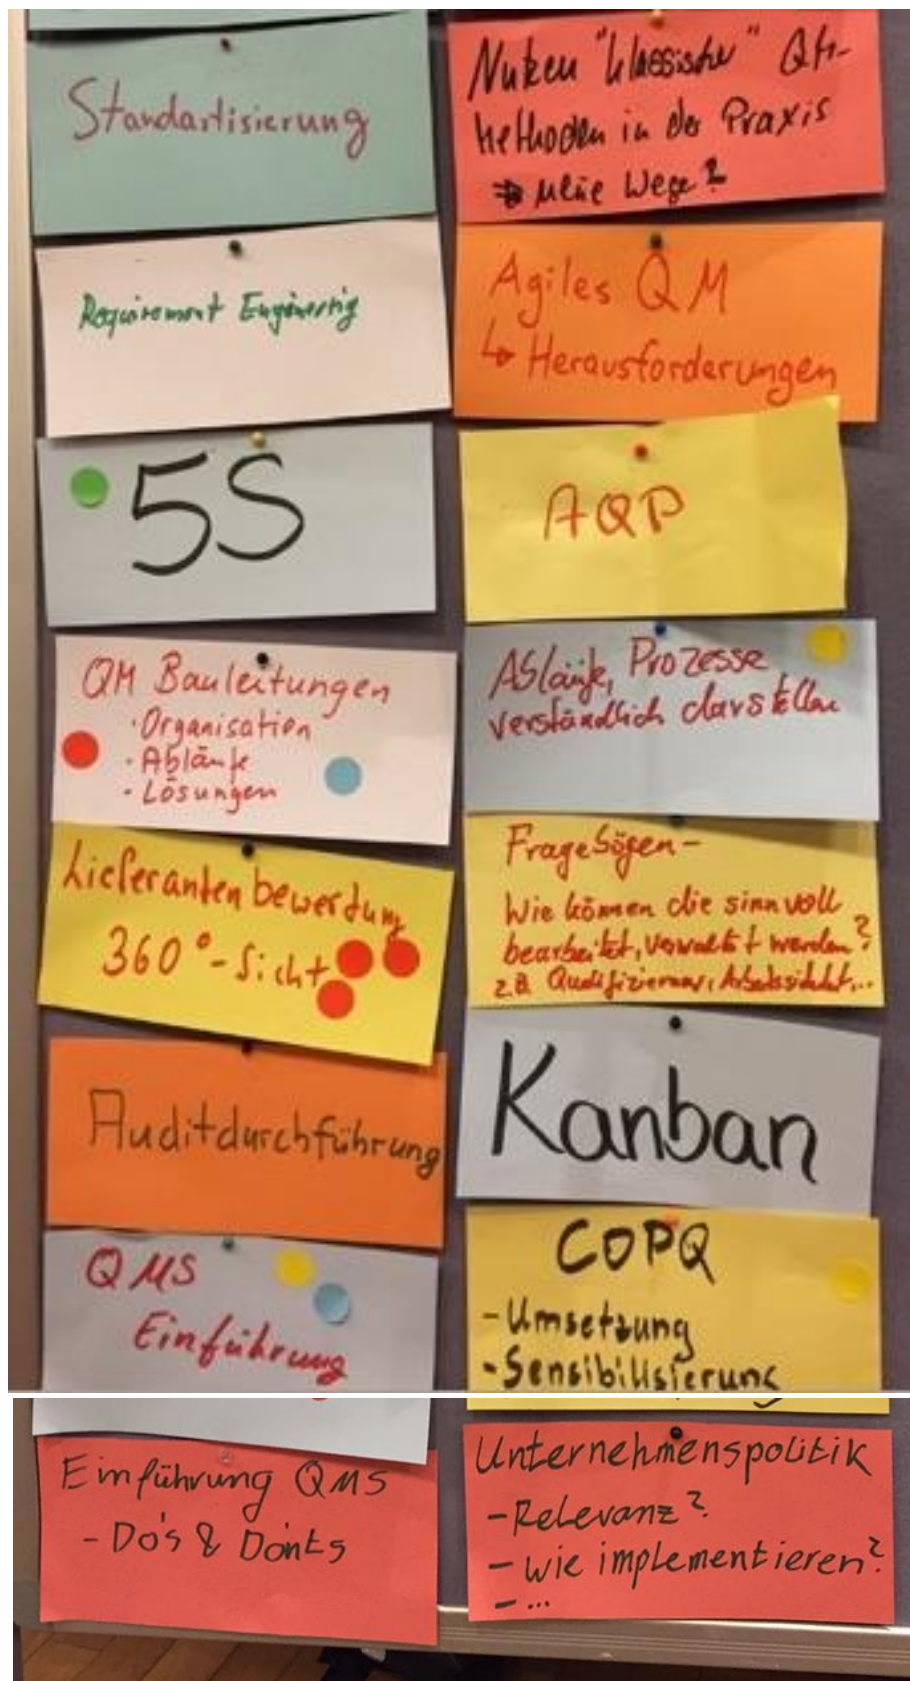 Standartisierung
Requirement Enginertig
5S
QM Bauleitungen
· Organisation
· Abläufe
· Lösungen
Lieferantenbewertung
360°-Sicht
Auditdurchführung
QMS
Einführung
Einführung QMS
- Do's & Dont's
Nutzen "klassischer" QM-
Methoden in der Praxis
⇒ neue Wege?
Agiles QM
↳ Herausforderungen
AQP
Abläufe, Prozesse
verständlich darstellen
Fragebögen-
Wie können die sinnvoll
bearbeitet, verwaltet werden?
z.B. Qualifizierung, Arbeitssicherheit,...
Kanban
COPQ
- Umsetzung
- Sensibilisierung
Unternehmenspolitik
- Relevanz?
- wie implementieren?
- ...